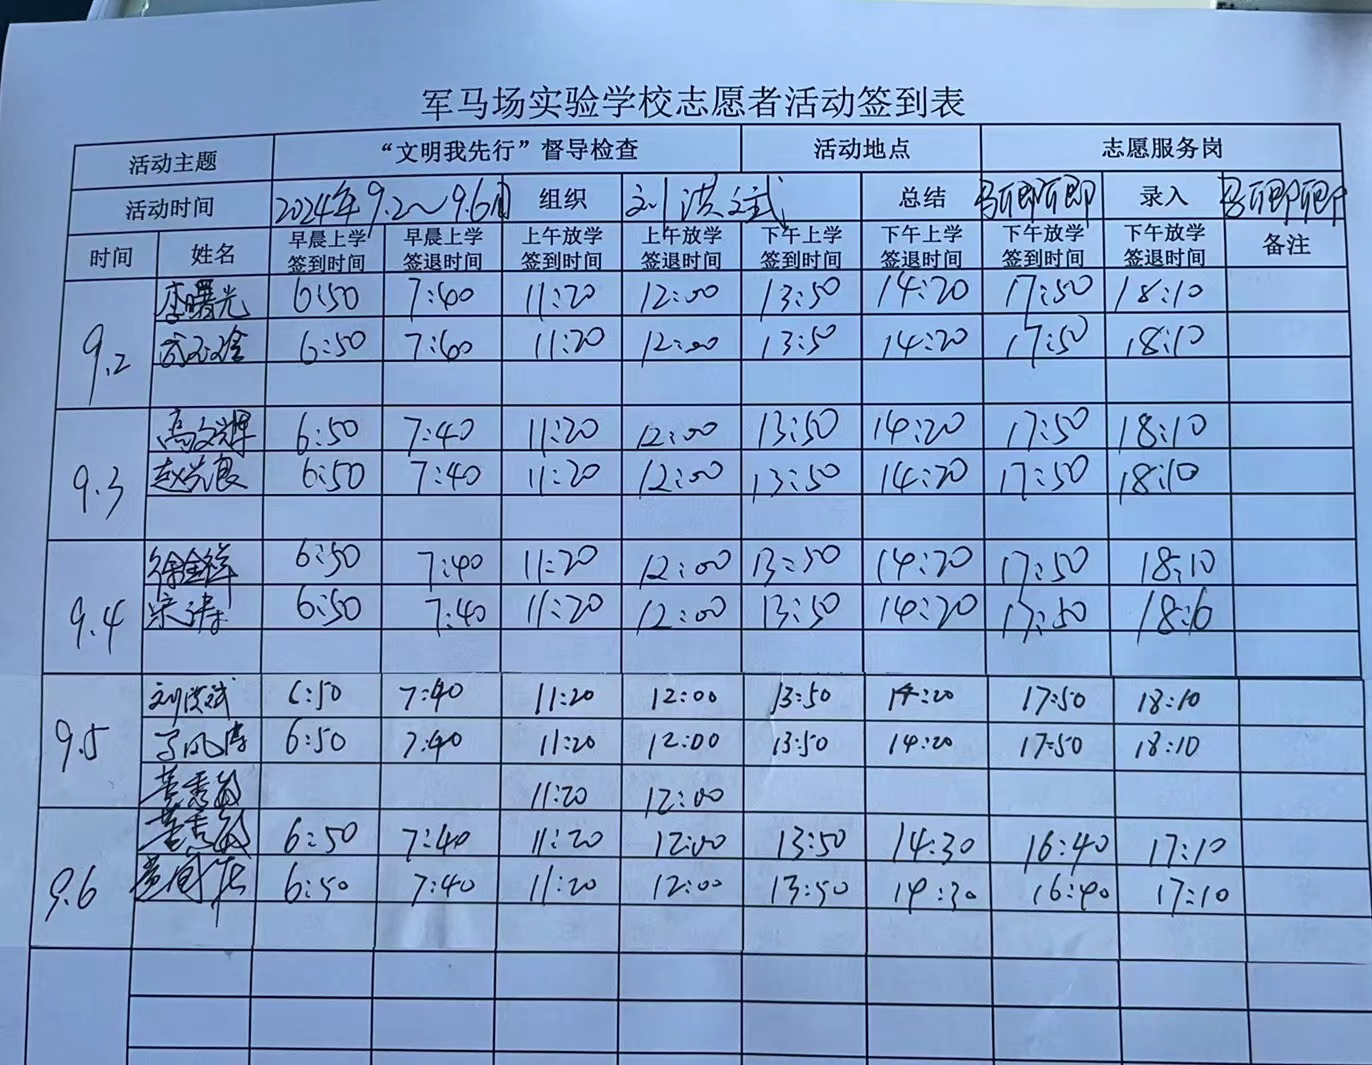 军马场实验学校志愿者活动签到表
活动主题 “文明我先行”督导检查 活动地点 志愿服务岗
活动时间 2024年9.2~9.6日 组织 刘洪斌 总结 录入
时间 姓名 早晨上学签到时间 早晨上学签退时间 上午放学签到时间 上午放学签退时间 下午上学签到时间 下午上学签退时间 下午放学签到时间 下午放学签退时间 备注
9.2 李曙光 6:50 7:40 11:20 12:00 13:50 14:20 17:50 18:10
6:50 7:40 11:20 12:00 13:50 14:20 17:50 18:10
9.3 高文辉 6:50 7:40 11:20 12:00 13:50 14:20 17:50 18:10
赵兴良 6:50 7:40 11:20 12:00 13:50 14:20 17:50 18:10
9.4 徐金祥 6:50 7:40 11:20 12:00 13:50 14:20 17:50 18:10
宋涛 6:50 7:40 11:20 12:00 13:50 14:20 17:50 18:10
9.5 刘洪斌 6:50 7:40 11:20 12:00 13:50 14:20 17:50 18:10
6:50 7:40 11:20 12:00 13:50 14:20 17:50 18:10
11:20 12:00
9.6 6:50 7:40 11:20 12:00 13:50 14:30 16:40 17:10
6:50 7:40 11:20 12:00 13:50 14:30 16:40 17:10